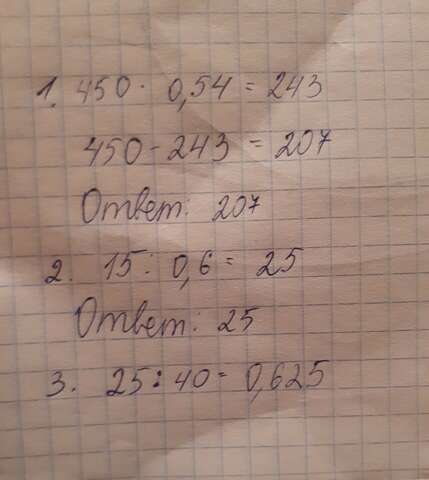 1. 450 · 0,54 = 243
450 - 243 = 207
Ответ: 207
2. 15 : 0,6 = 25
Ответ: 25
3. 25 : 40 = 0,625